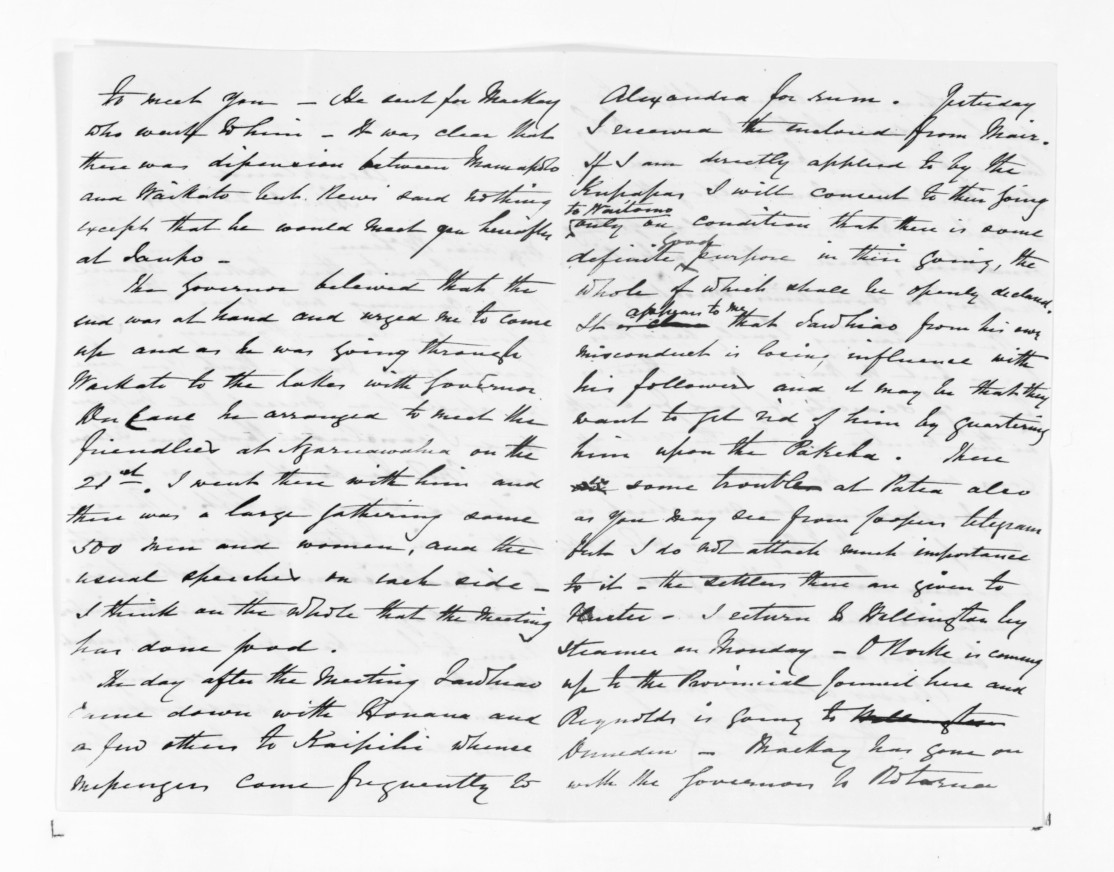 to meet you – He sent for Mackay
who went to him – It was clear that
there was dissension between Maniapoto
and Waikato but Rewi said nothing
except that he would meet you hereafter
at Taupo –
The Governor believed that the
end was at hand and urged me to come
up and as he was going through
Waikato to the lakes with Governor
Du Cane he arranged to meet the
friendlies at Ngaruawahia on the
21st. I went there with him and
there was a large gathering some
500 men and women, and the
usual speeches on each side –
I think on the whole that the Meeting
has done good.
The day after the Meeting Tawhiao
came down with Honana and
a few others to Kaipiha whence
messengers come frequently to
Alexandra for rum. Yesterday
I received the enclosed from Mair.
If I am directly applied to by the
Kupapas I will consent to their going
to Waitomo
only on condition that there is some
definite good purpose in their going, the
whole of which shall be openly declared.
It appears to me that Tawhiao from his own
misconduct is losing influence with
his followers and it may be that they
want to get rid of him by quartering
him upon the Pakeha. There
is some trouble at Patea also
as you may see from Coopers telegram
but I do not attach much importance
to it – the settlers there are given to
– I return to Wellington by
Steamer on Monday – O'Rorke is coming
up to the Provincial Council here and
Reynolds is going to Wellington
Dunedin – Mackay has gone on
with the Governors to Rotorua